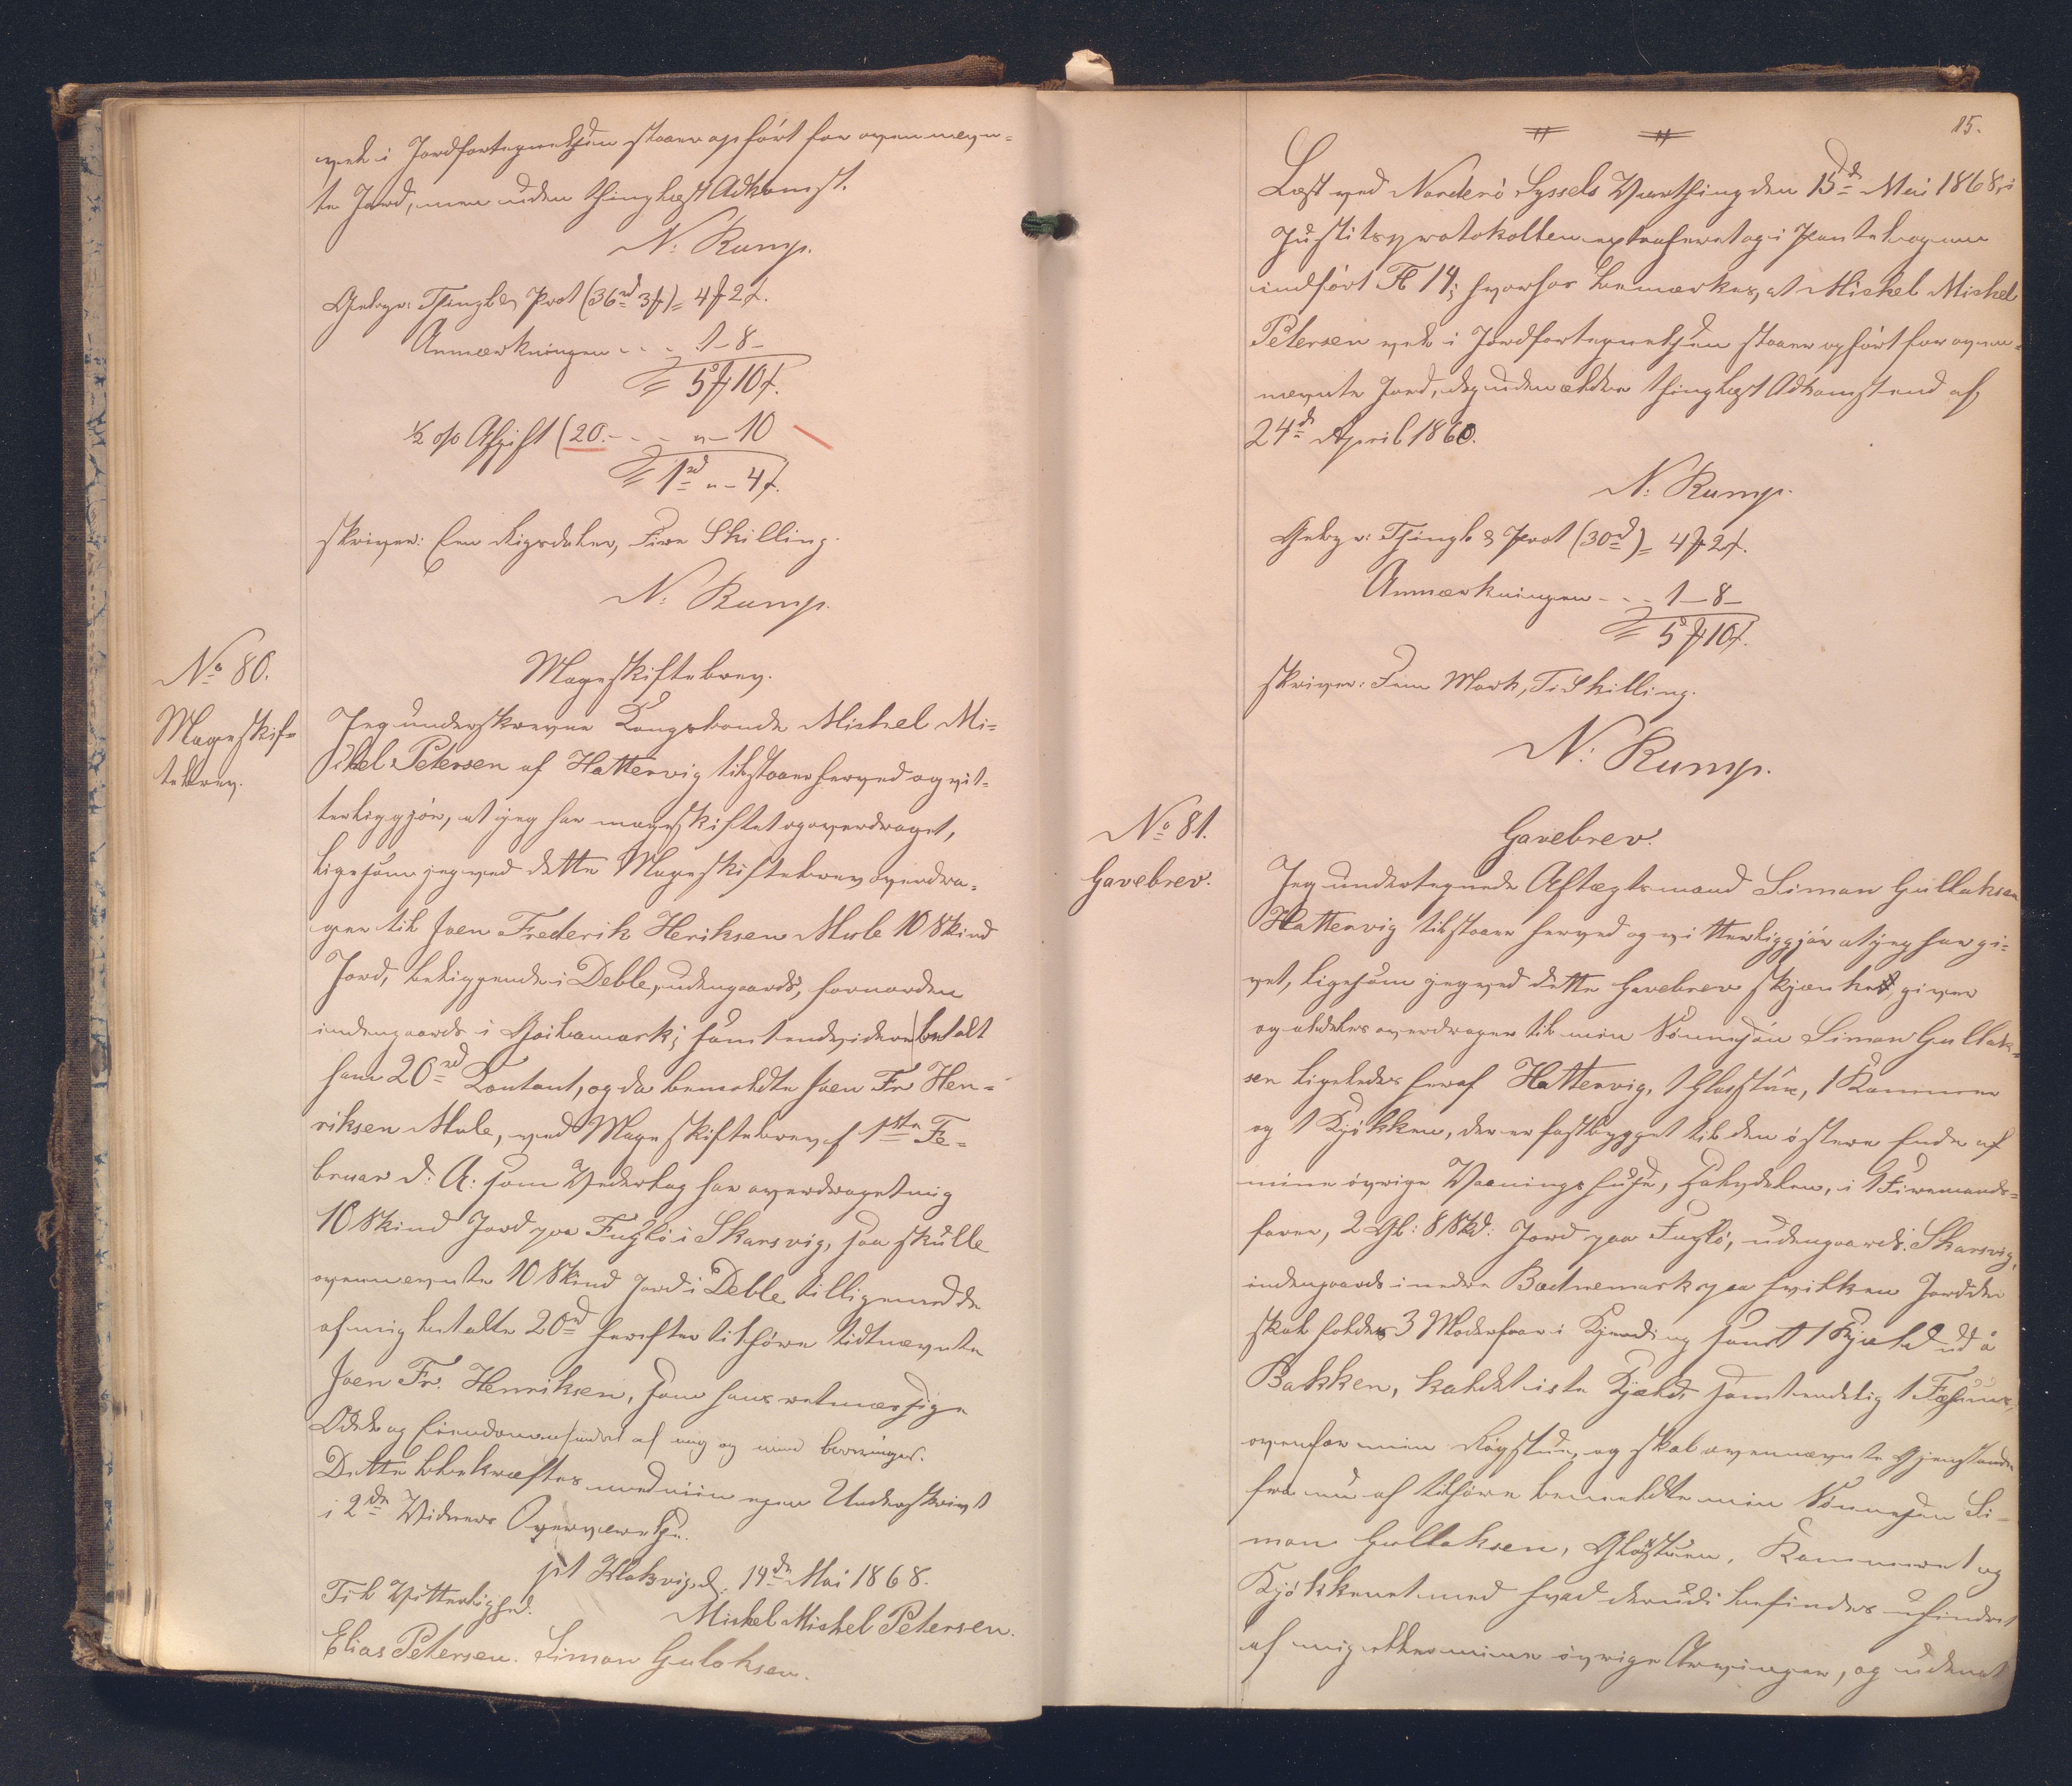 vel i Jordfortegnelsen staaer opført for ovennævn=
te Jord, men uden thinglæst Adkomst.
N: Rump.
Gebyr: Thingl & Prot (36rd 3ƒ) = 4 2ƒ.
Anmærkningen - - - 1-8-
= 5 10ƒ.
½ o/o Afgift (20. - - - " - 10
= 1rd " - 4ƒ.
skriver: Een Rigsdaler, Fire Skilling.
N: Rump.
No 80.
Mageskif=
tebrev.
Mageskiftebrev.
Jeg underskrevne Kongsbonde Michel Mi=
chel Petersen af Hattervig tilstaaer herved og vit=
terliggjør, at jeg har mageskiftet og overdraget,
ligesom jeg ved dette Mageskiftebrev overdra=
ger til Joen Frederik Heriksen Mule 10 Skind
Jord, beliggende i Deble, udengaards, hvororden
indengaards i mark; samt endvidere betalt
ham 20rd Contant, og da bemeldte Joen Fr Hen=
riksen Mule, ved Mageskiftebrev af 1ste Fe=
bruar d: A: som Vederlag har overdraget mig
10 Skind Jord paa Fuglø i Skarsvig, saa skulle
ovennævnte 10 Skind Jord i Deble tilligemed de
af mig betalte 20rd herefter tilhøre tidtnævnte
Joen Fr. Henriksen, som hans retmæssige
Odel og Eiendom uhindret af mig og mine Arvinger.
Dette bekræftes med min egen Underskrivt
i 2de Vidners Overværelse.
pt Klaksvig, d. 14de Mai 1868.
Til Vitterlighed.
Michel Michel Petersen.
Elias Petersen. Simon Guloksen.
15.
Læst ved Norderø Syssels Vaarthing den 15de Mai 1868, i
Justitsprotokollen extraheret og i Pantebogen
indført Fl 14; hvorhos bemærkes, at Michel Michel
Petersen vel i Jordfortegnelsen staaer opført for oven=
nævnte Jord, dog uden ældre thinglæst Adkomst end af
24de April 1860.
N: Rump.
Gebyr: Thingl & Prot (30rd) = 4 2ƒ.
Anmærkningen - - - 1-8-
= 5 10ƒ.
skriver: Fem Mark, Ti Skilling.
N: Rump.
No 81.
Gavebrev.
Gavebrev.
Jeg undertegnede Aftægtsmand Simon Gullaksen
Hattervig tilstaaer herved og vitterliggjør at jeg har gi=
vet, ligesom jeg ved dette Gavebrev skjænker, giver
og aldeles overdrager til min Sønnesøn Simon Gullak=
sen ligeledes heraf Hattervig, 1 Glasstue, 1 Kammer
og 1 Kjøkken, der er fastbygget til den østere Ende af
mine øvrige Vaaningshuse, Halvdelen, i 1 Firemands=
farer, 2 Gl: 8 Skd: Jord paa Fuglø, udengaards: Skarsvig,
indengaards i nedre Bødnemark paa hvilken Jord der
skal holdes 3 Moderfaar i Kjerding samt 1 Hjald ud å
Bakken, kaldet iste Hjald, samt endelig 1 Fæhuus,
ovenfor min Røgstue, og skal ovennævnte Gjenstande
fra nu af tilhøre bemeldte min Sønnesøn Si=
mon Gullaksen, Glasstuen, Kammeret og
Kjøkkenet med hvad derudi befindes uhindret
af mig eller mine øvrige Arvinger, og uden at